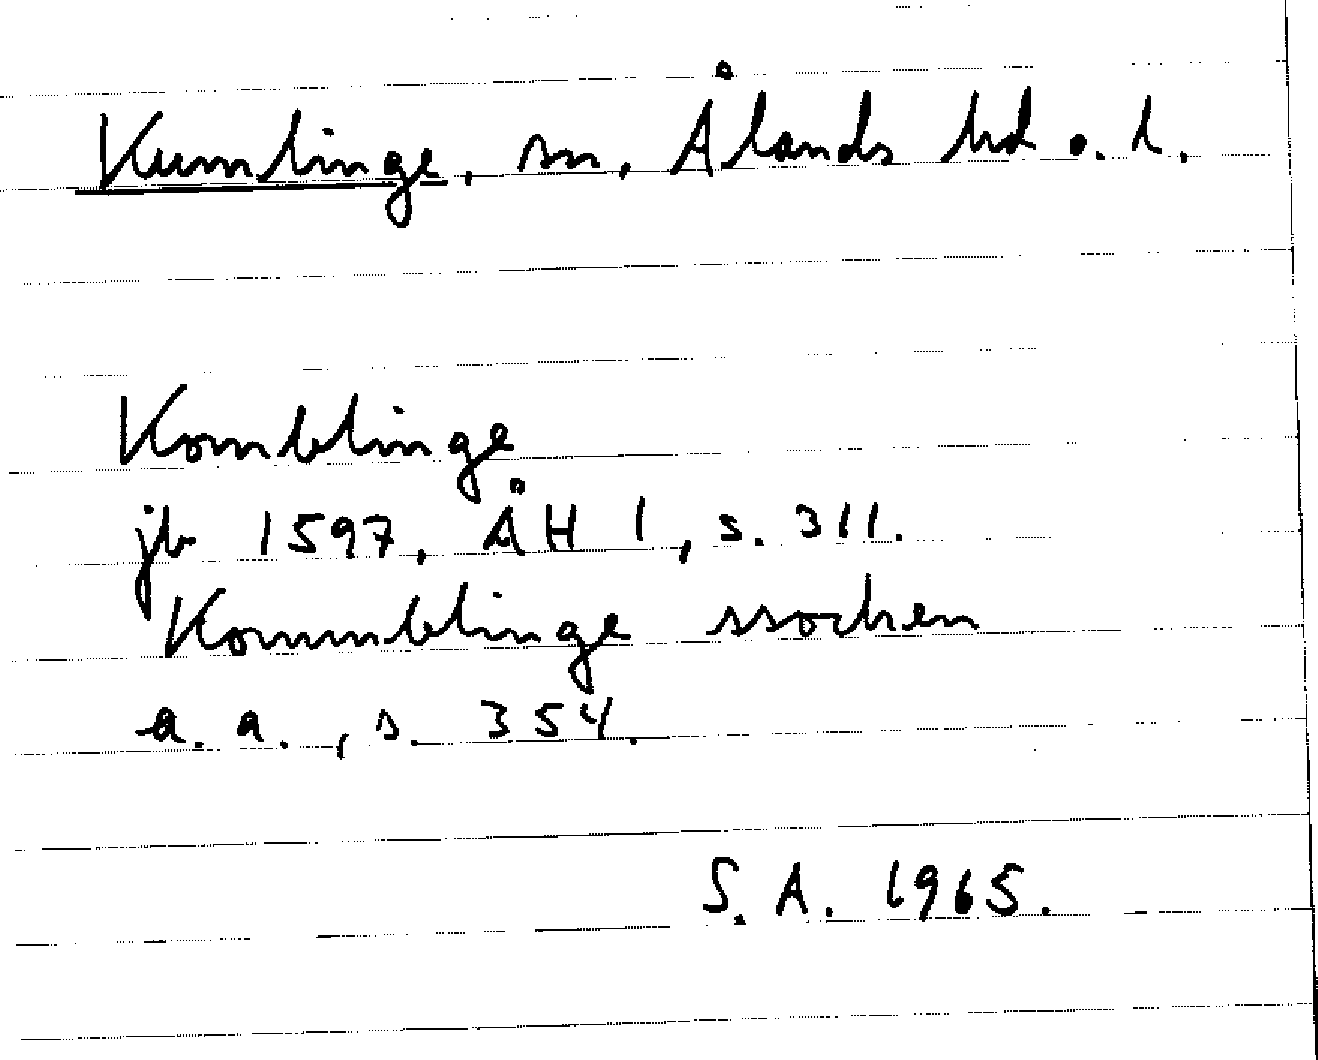 Kumlinge, sn, Ålands hd o. l.
Komblinge
jb 1597, ÅH 1, s. 311.
Kommblinge ssochen
a. a., s. 354.
S. A. 1965.